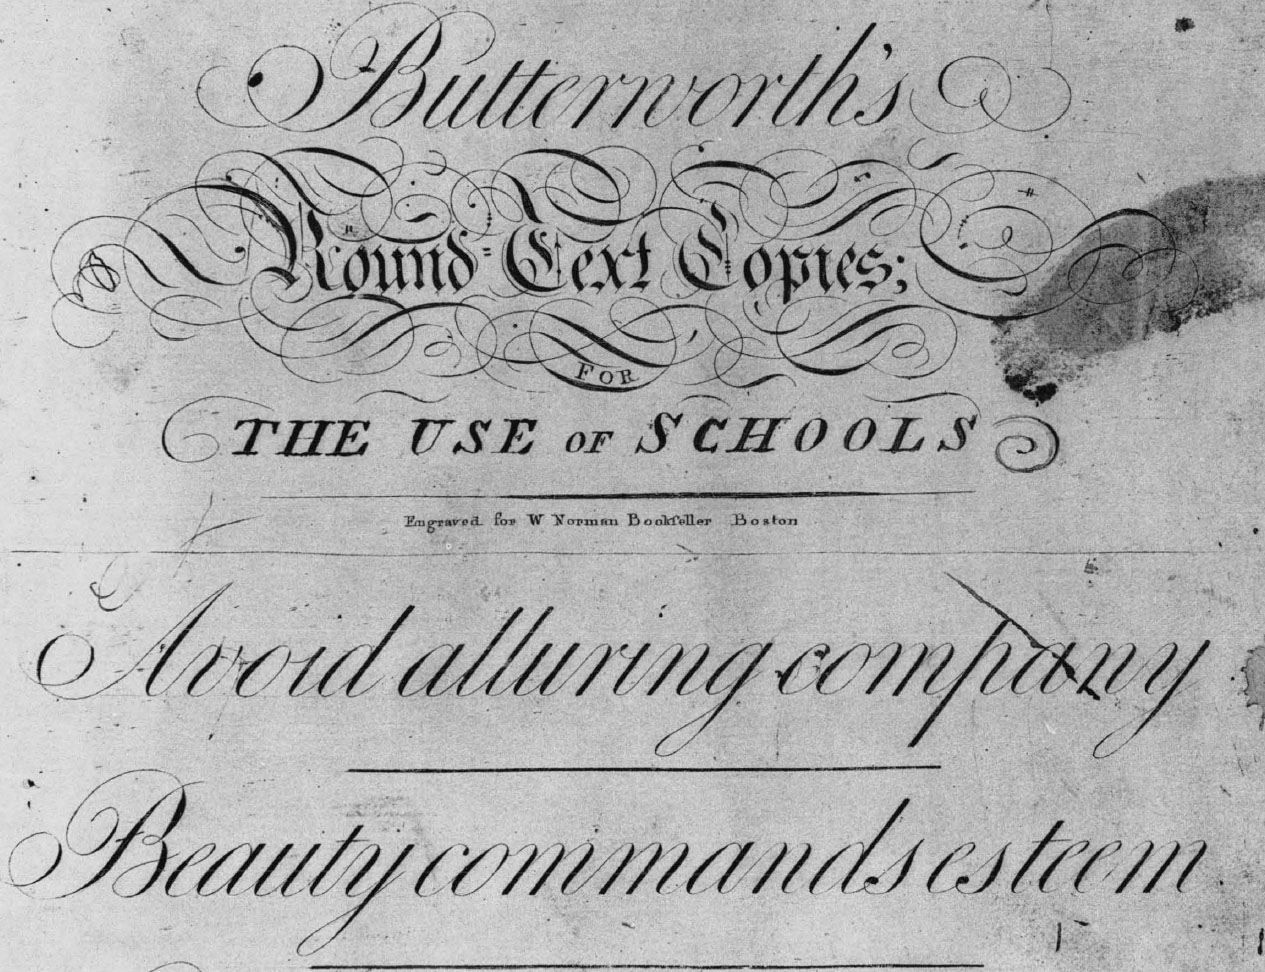 Butterworth's
Round=Text Copies;
FOR
THE USE OF SCHOOLS
Engraved for W Norman Bookſeller Boston
Avoid alluring company
Beauty commands esteem